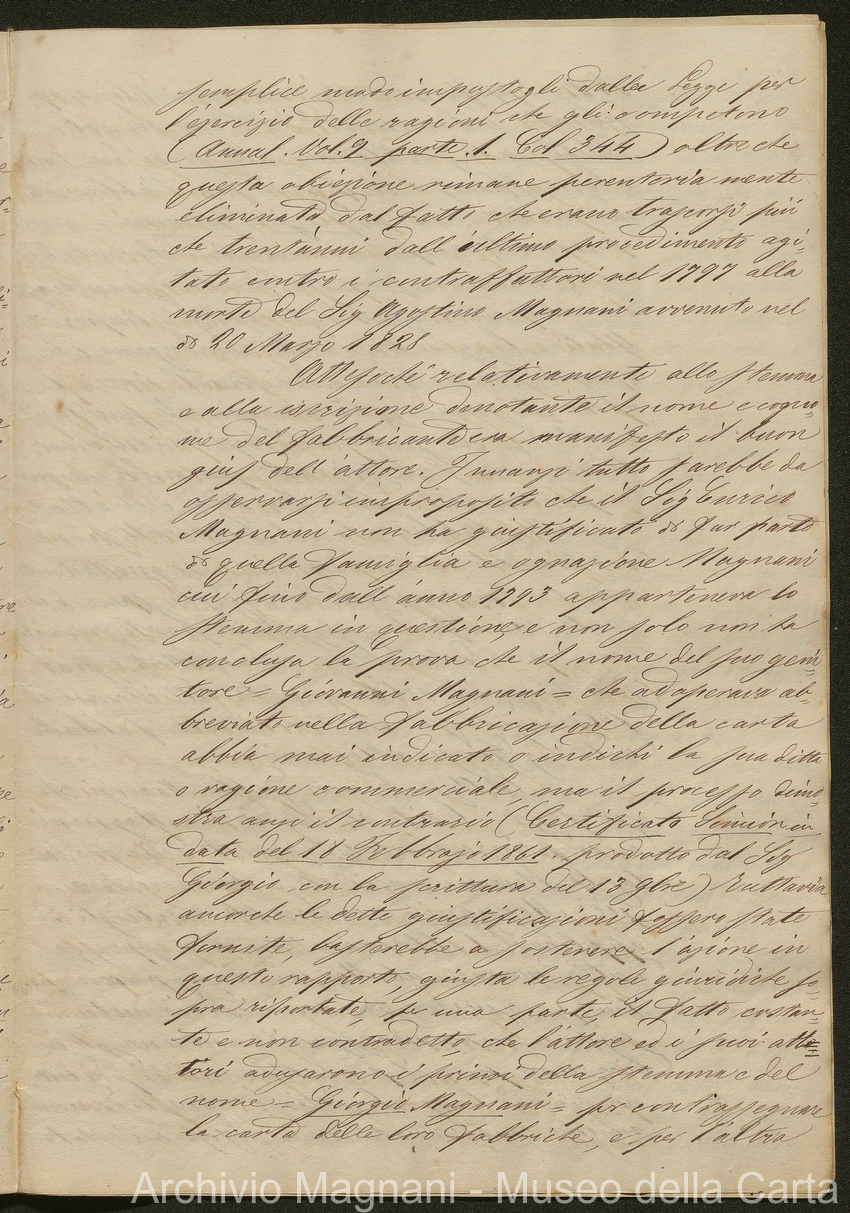 semplice modo impostogli dalla Legge per
l'esercizio delle ragioni che gli competono
(Annal. Vol. 9 parte. 1. Col 344) oltre che
questa obiezione rimane perentoriamente
eliminata dal fatto che erano trascorsi più
che trent'anni dall'ultimo procedimento agi=
tato contro i contraffattori nel 1797 alla
morte del Sig Agostino Magnani avvenuto nel
dì 20 Marzo 1828
Attesoché relativamente allo stemma
e alla iscrizione denotante il nome e cogno=
me del fabbricante era manifesto il buon
gius dell'attore. Innanzi tutto sarebbe da
osservarsi in proposito che il Sig Enrico
Magnani non ha giustificato di far parte
di quella famiglia e agnazione Magnani
cui fino dall'anno 1793 apparteneva lo
stemma in questione, e non solo non ha
conclusa la prova che il nome del suo geni=
tore = Giovanni Magnani = che adoperava ab=
breviato nella fabbricazione della carta
abbia mai indicato o indichi la sua ditta
o ragione commerciale, ma il processo dimo=
stra anzi il contrario (Certificato in
data del 18 Febbrajo 1861. prodotto dal Sig
Giorgio con la scrittura del 13 9bre) Tuttavia
ancorche le dette giustificazioni fossero state
fornite, basterebbe a sostenere l'azione in
questo rapporto, giusta le regole giuridiche so=
pra riportate, per una parte, il fatto costan=
te e non contradetto, che l'attore ed i suoi
adusarono i primi della stemma e del
nome = Giorgio Magnani = per contrassegnare
la carta delle loro fabbriche, e per l'altra
Archivio Magnani - Museo della Carta